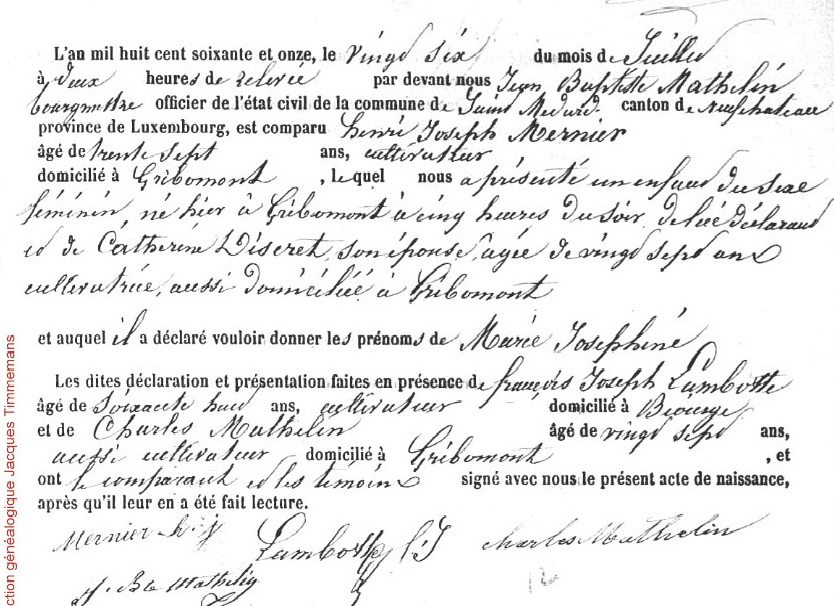 L'an mil huit cent soixante et onze, le vingt six du mois de Juillet
à deux heures de relevée par devant nous Jean Baptiste Mathelin
bourgmestre officier de l'état civil de la commune de Saint Médard canton de Neufchateau
province de Luxembourg, est comparu henri Joseph Mernier
âgé de trente sept ans, cultivateur
domicilié à Gribomont , lequel nous a présenté un enfant du sexe
féminin, né hier à Gribomont à cinq heures du soir de lui déclarant
et de Catherine Discret, son épouse, agée de vingt sept ans
cultivatrice, aussi domiciliée à Gribomont
et auquel il a déclaré vouloir donner les prénoms de Marie Josephine
Les dites déclaration et présentation faites en présence de françois Joseph Lambotte
âgé de soixante huit ans, cultivateur domicilié à
et de Charles Mathelin âgé de vingt sept ans,
aussi cultivateur domicilié à Gribomont , et
ont le comparant et les témoins signé avec nous le présent acte de naissance,
après qu'il leur en a été fait lecture.
Mernier h. j Lambotte f J Charles Mathelin
J. Bte Mathelin
ction généalogique Jacques Timmemans